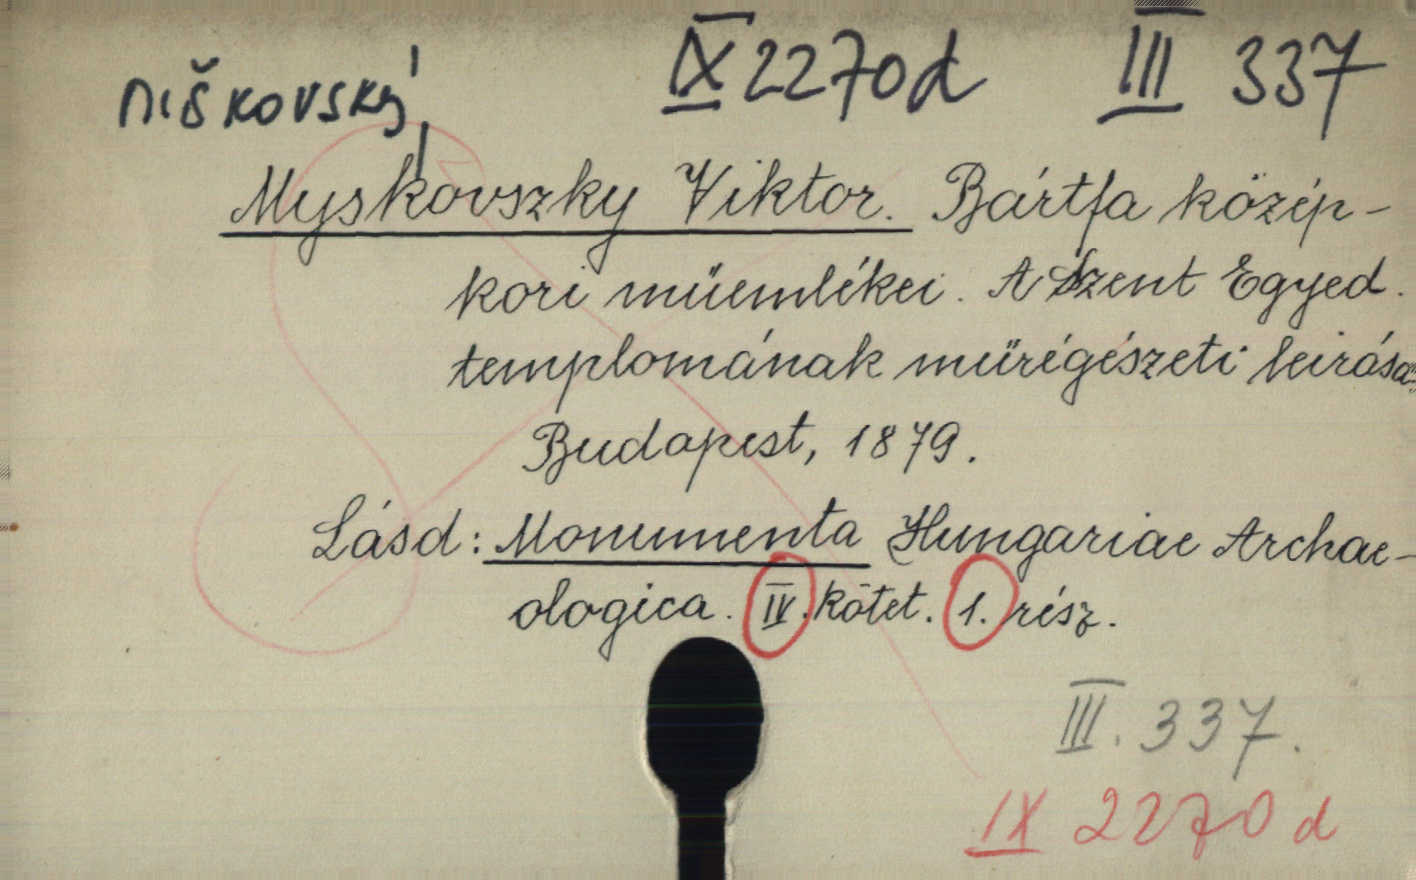 IX 2270d III 337
Miškovský
Myskovszky Viktor. Bártfa közép-
kori műemlékei. A Szent Egyed
templomának műrégészeti leirása
Budapest, 1879.
Lásd: Monumenta Hungariae Archae-
ologica. IV. kötet. 1. rész.
III. 337.
IX 2270 d